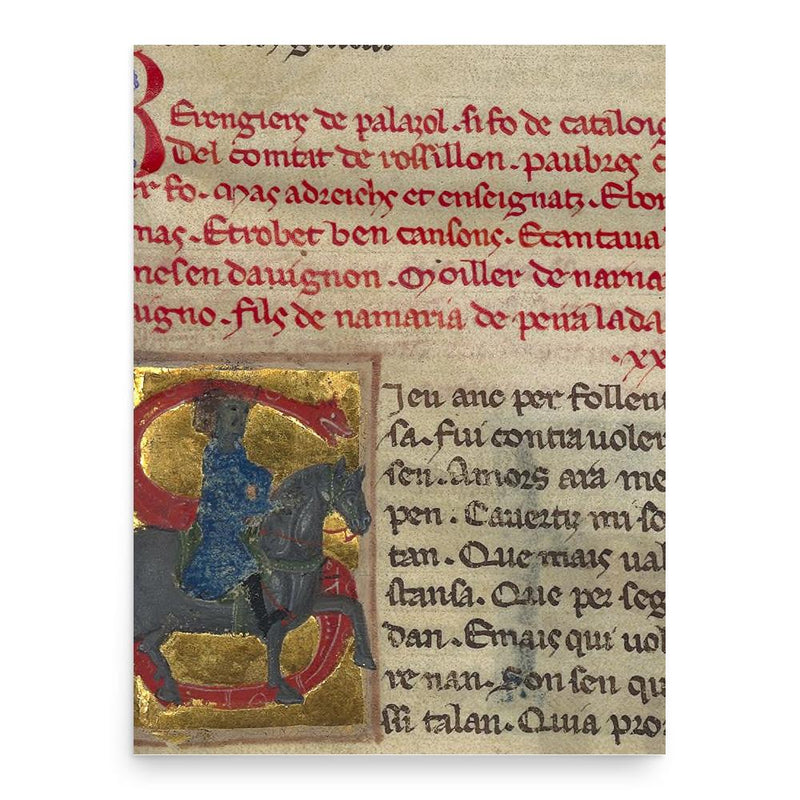 Berengiers de palazol. si fo de cataloig
Del comtat de rossillon. paubres c
er fo. Mas adreichs et enseignatz. Ebon
mas. Etrobet ben cansons. Ecantaua
nesen dauignon. Moiller de narna
uigno. fils de namaria de peira lada
.xx
Ieu anc per follen
sa. fui contra uoler
sen. Amors ara me
pen. Cauertz mi so
tan. Que mais ual
stansa. Que per seg
dan. Emais qui uol
re nan. Son sen qu
ssi talan. Quia pro